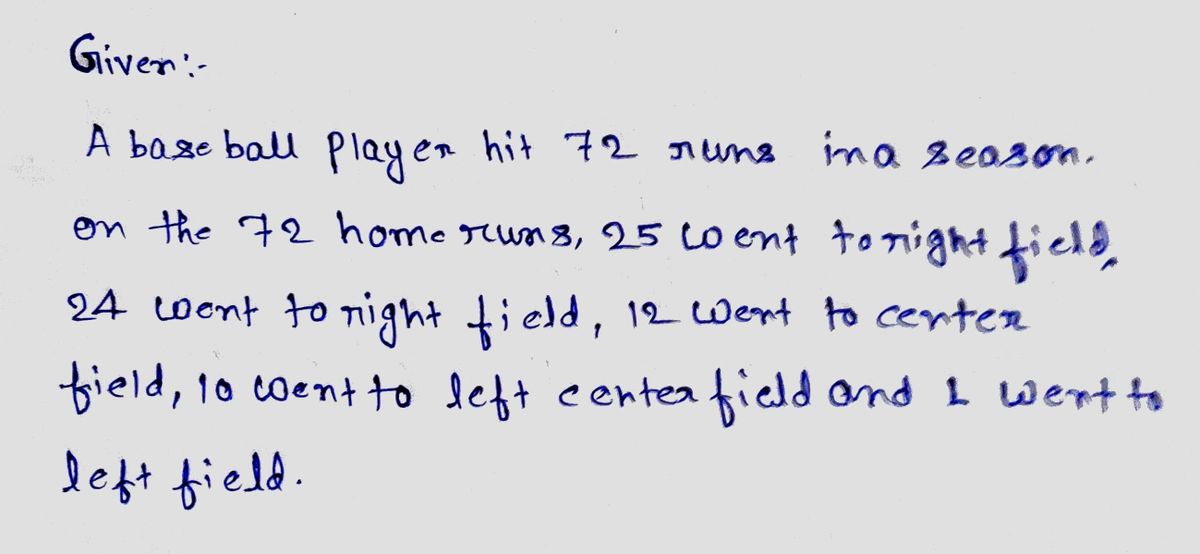 Given:-
A base ball player hit 72 runs in a season.
on the 72 home runs, 25 went to right field,
24 went to right field, 12 went to center
field, 10 went to left center field and 1 went to
left field.